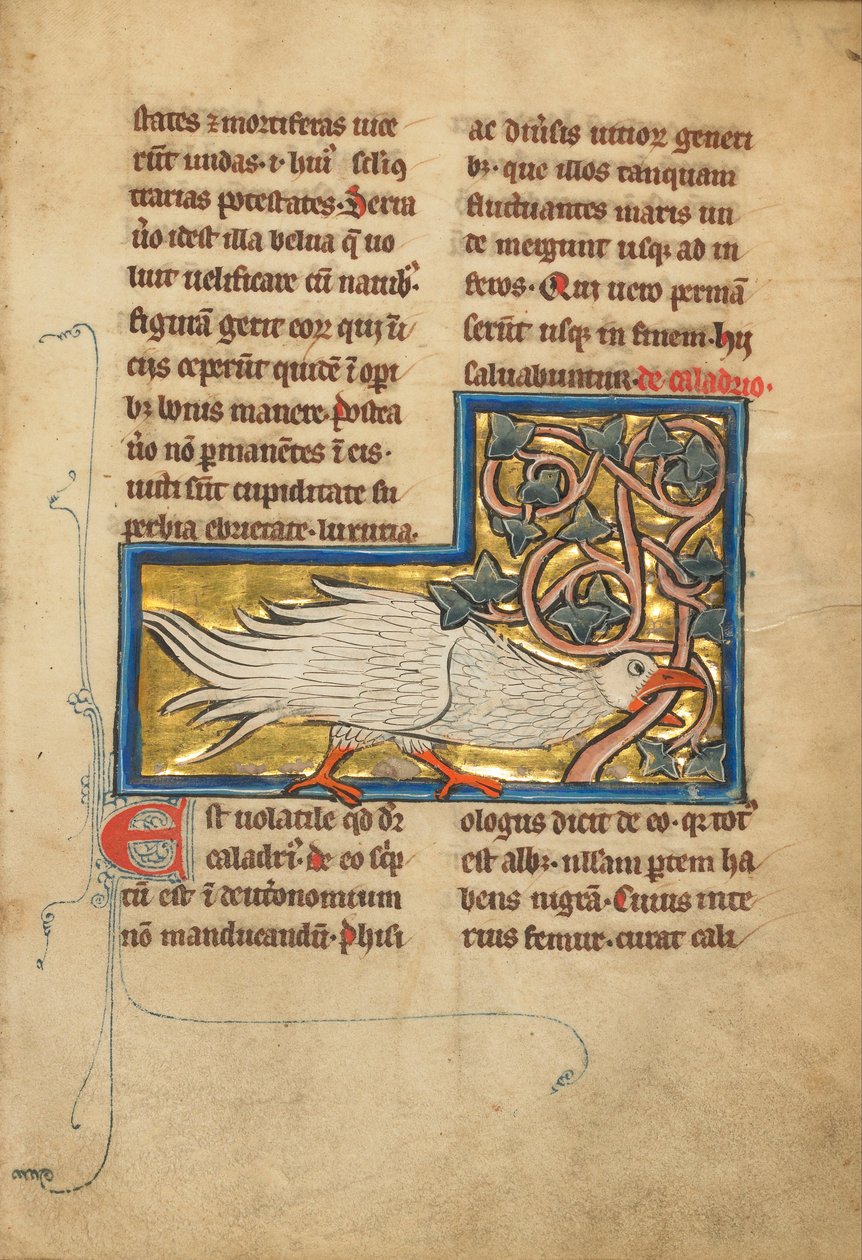 states ⁊ mortiferas uice
rūt undas · i · huiꝰ sclīꝯ
trarias potestates · Serra
u̾o idest illa belua q̄ uo
luit uelificare cū nauibꝰ.
figurā gerit eoꝝ qui īi
ciis ceperūt quidē ī op̄i
bꝫ bonis manere · postea
u̾o nō ꝑmanētes ī eis ·
uicti sūt cupiditate su
perbia ebrietate · luxuria ·
ac diu̾sis uitioꝝ generi
bꝫ · que illos tanquam
fluctuantes maris un
de mergunt usqꝫ ad in
feros · Qui uero permā
serūt usqꝫ in finem · hij
saluabuntur · de caladrio ·
Est uolatile qd̄ dr̄
caladriꝰ · de eo sc̄p
tū est ī deut̾onomium
nō manducandū · Phisi
ologus dicit de eo · qr totꝰ
est albꝫ · ullam ꝑtem ha
bens nigrā · Cuius inte
rius femur · curat cali